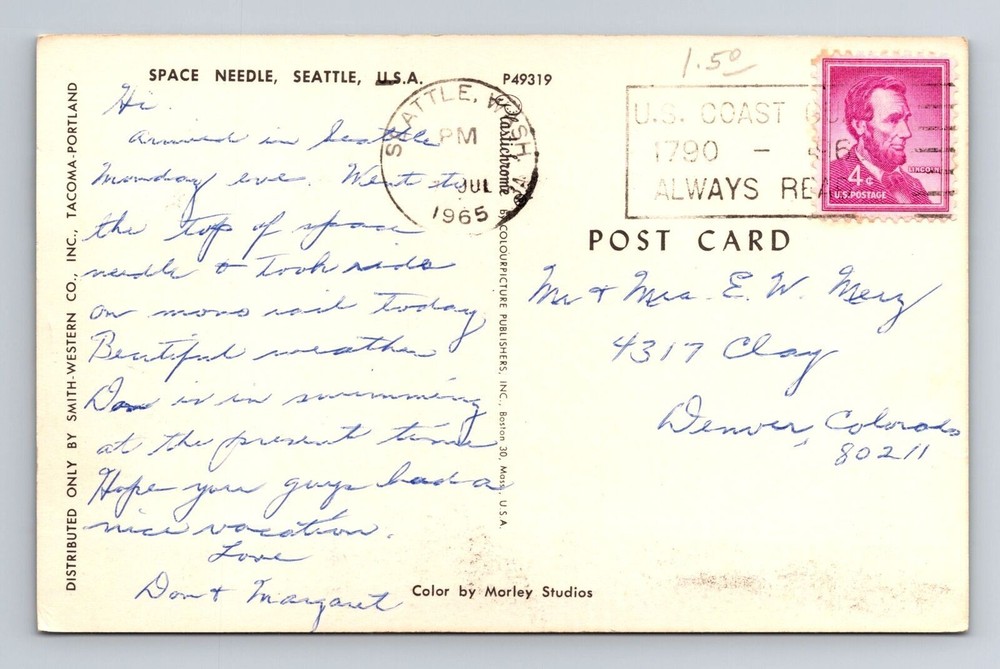 SPACE NEEDLE, SEATTLE, U.S.A.
P49319
1.50
Hi.
Arrived in Seattle
Monday eve. Went to
the top of space
needle & took ride
on mono rail today
Beautiful weather
Don is in swimming
at the present time
Hope you guys had a
nice vacation.
Love
Don & Margaret
DISTRIBUTED ONLY BY SMITH-WESTERN CO., INC., TACOMA-PORTLAND
SEATTLE, WASH.
PM
JUL
1965
Plastichrome
BY COLOURPICTURE PUBLISHERS, INC., Boston 30, Mass., U.S.A.
U.S. COAST
1790 -
ALWAYS
LINCOLN
4¢
U.S. POSTAGE
POST CARD
Mr & Mrs. E. W. Merz
4317 Clay
Denver, Colorado
80211
Color by Morley Studios